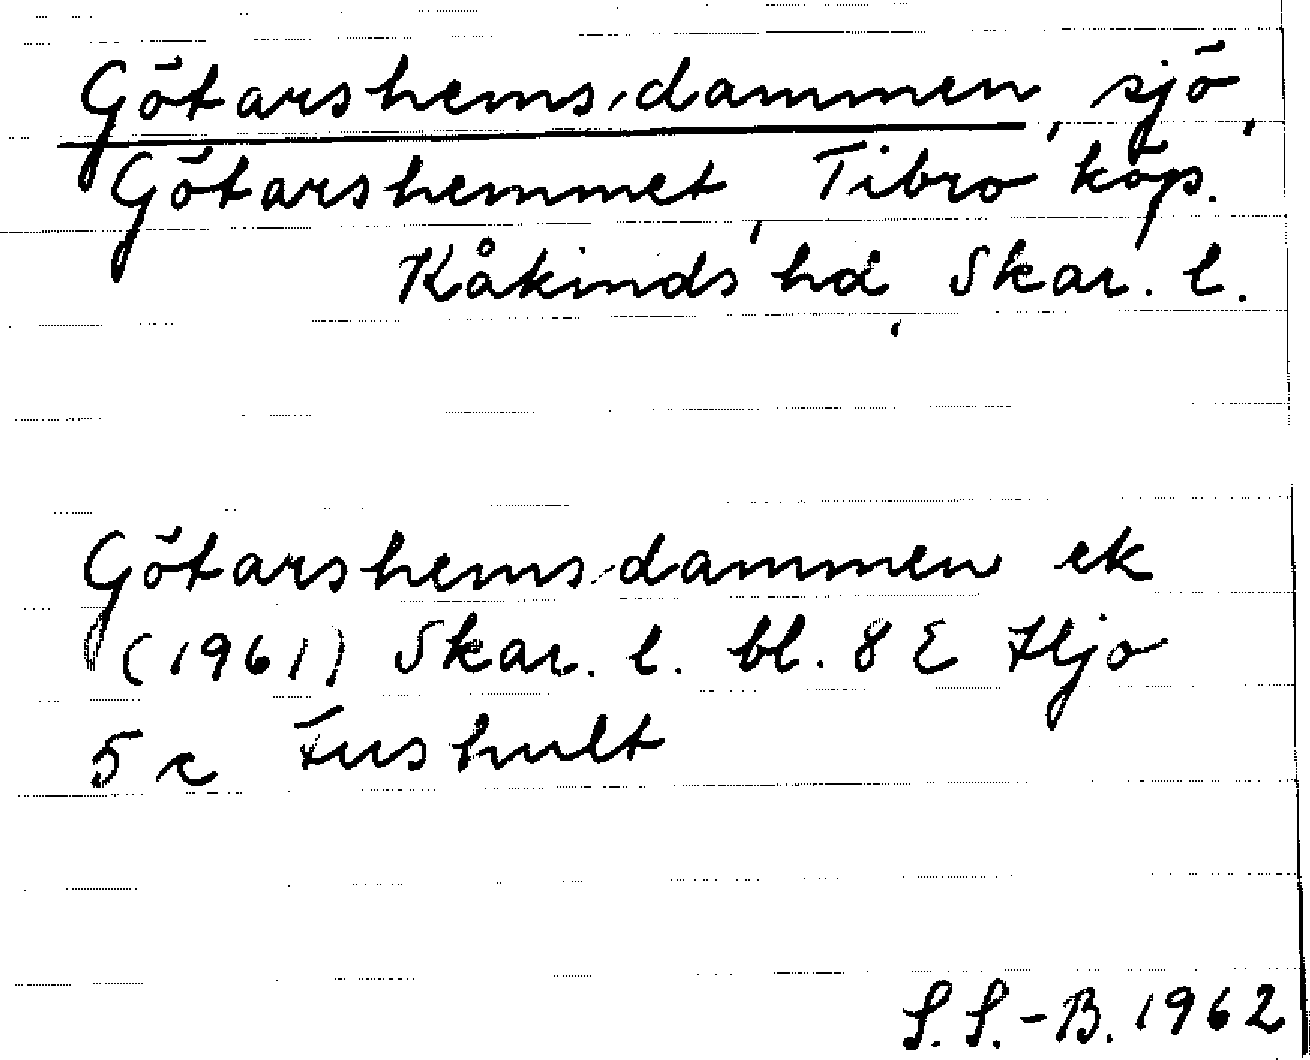 Götarshemsdammen, sjö,
Götarshemmet, Tibro köp.
Kåkinds hd, Skar. l.
Götarshemsdammen ek
(1961) Skar. l. bl. 8 E Hjo
5 c Fushult
S. S.-B. 1962